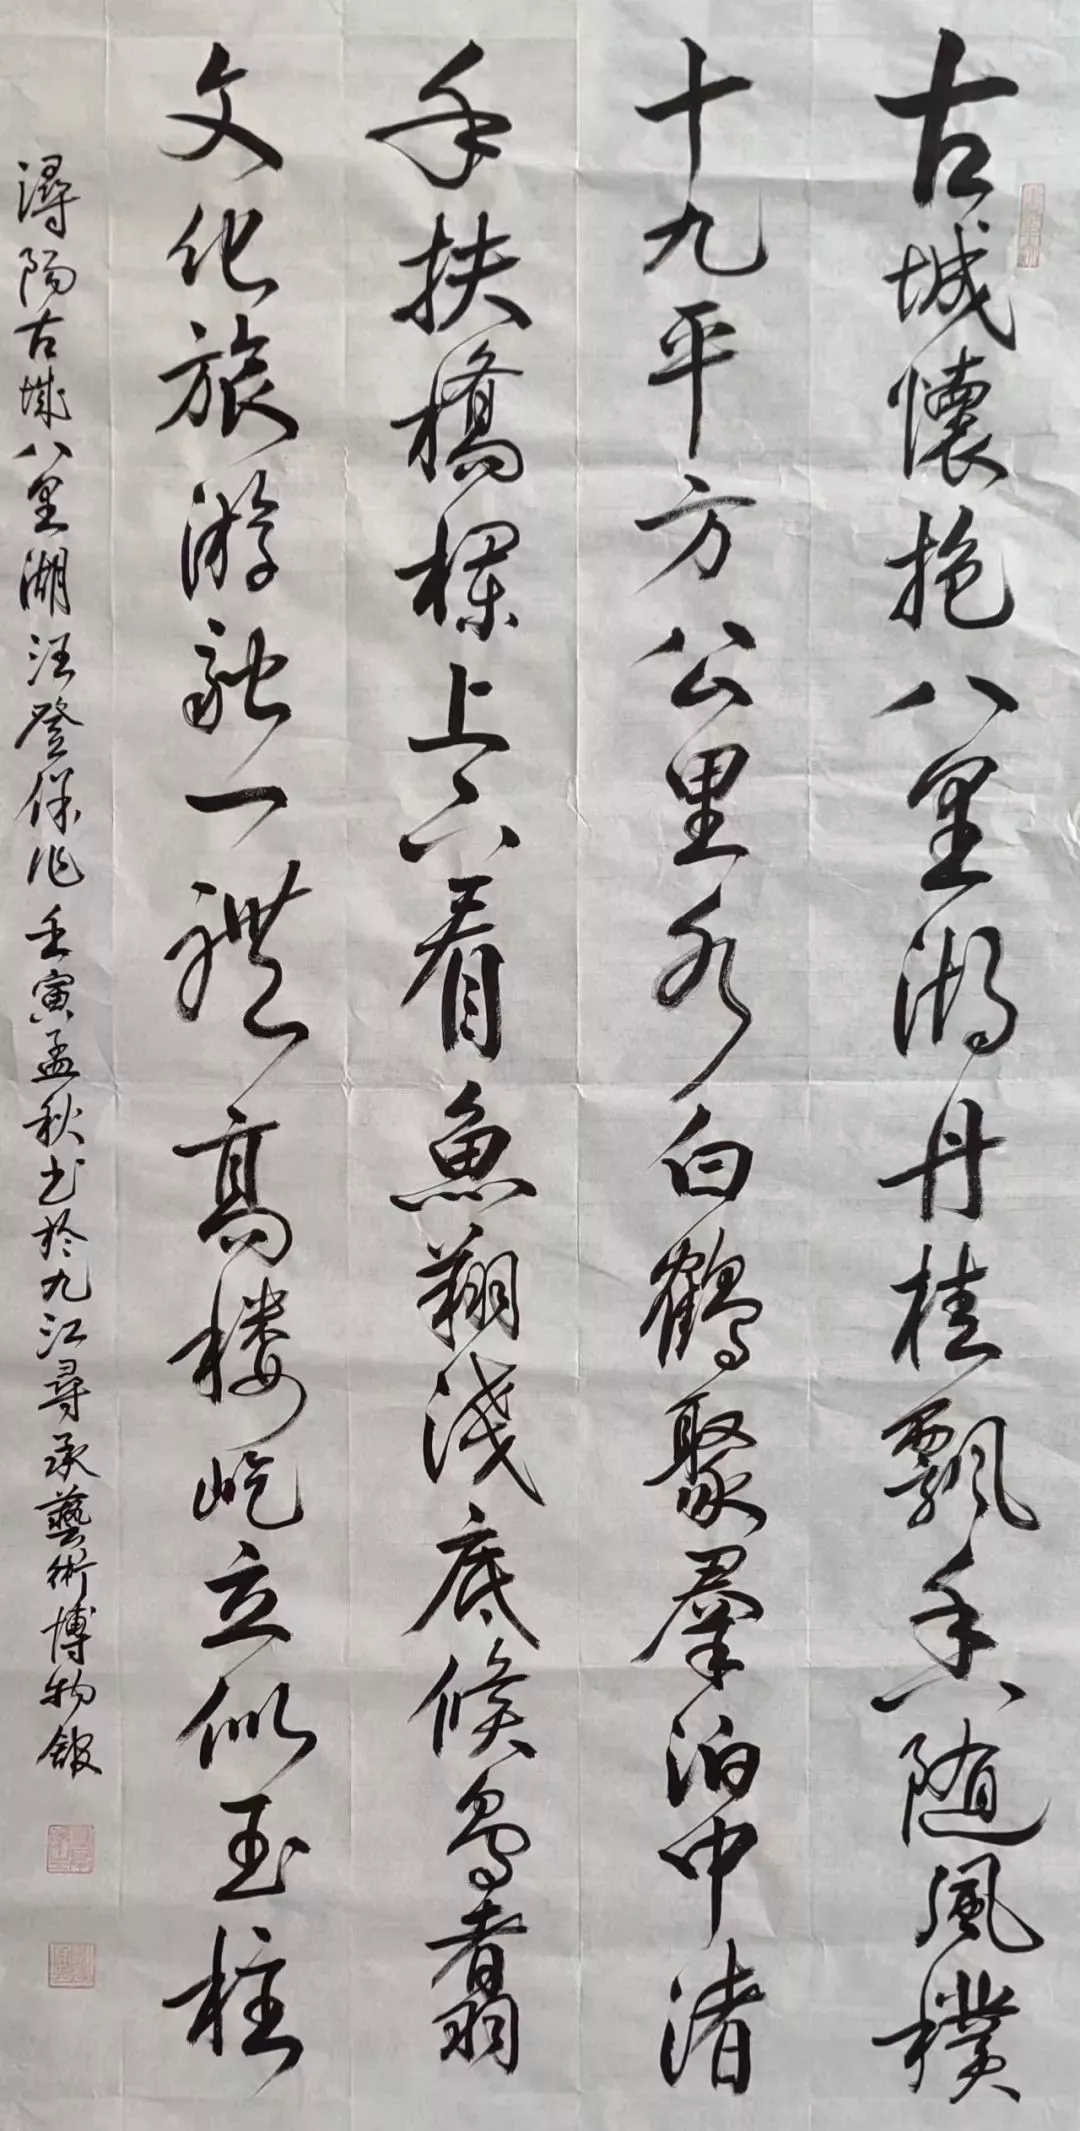 古城懷抱八里湖丹桂飄香隨風撲
十九平方公里水白鶴聚羣泊中渚
手扶橋欄上下看魚翔淺底候鳥翥
文化旅游融一體高樓屹立似玉柱
潯陽古城八里湖汪登保作壬寅孟秋書於九江尋承藝術博物館